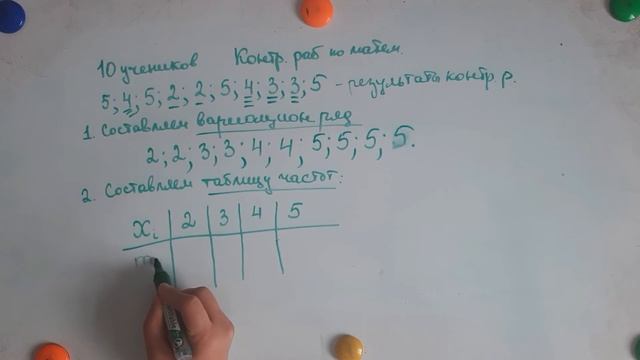 10 учеников Контр. раб по матем.
5; 4; 5; 2; 2; 5; 4; 3; 3; 5 - результаты контр р.
1. Составляем вариацион ряд
2; 2; 3; 3; 4; 4; 5; 5; 5; 5.
2. Составляем таблицу частот:
Xi 2 3 4 5
m